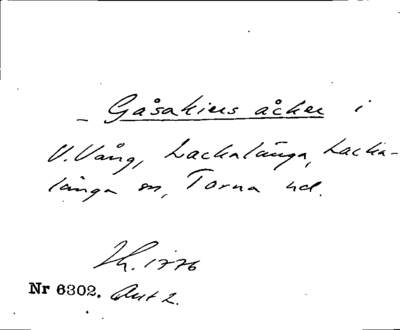 _ Gåsakiers åcker i
V. Vång, Lackalänga, Lacka-
länga sn, Torna hd.
Lh. 1776
Nr 6302. Akt 2.